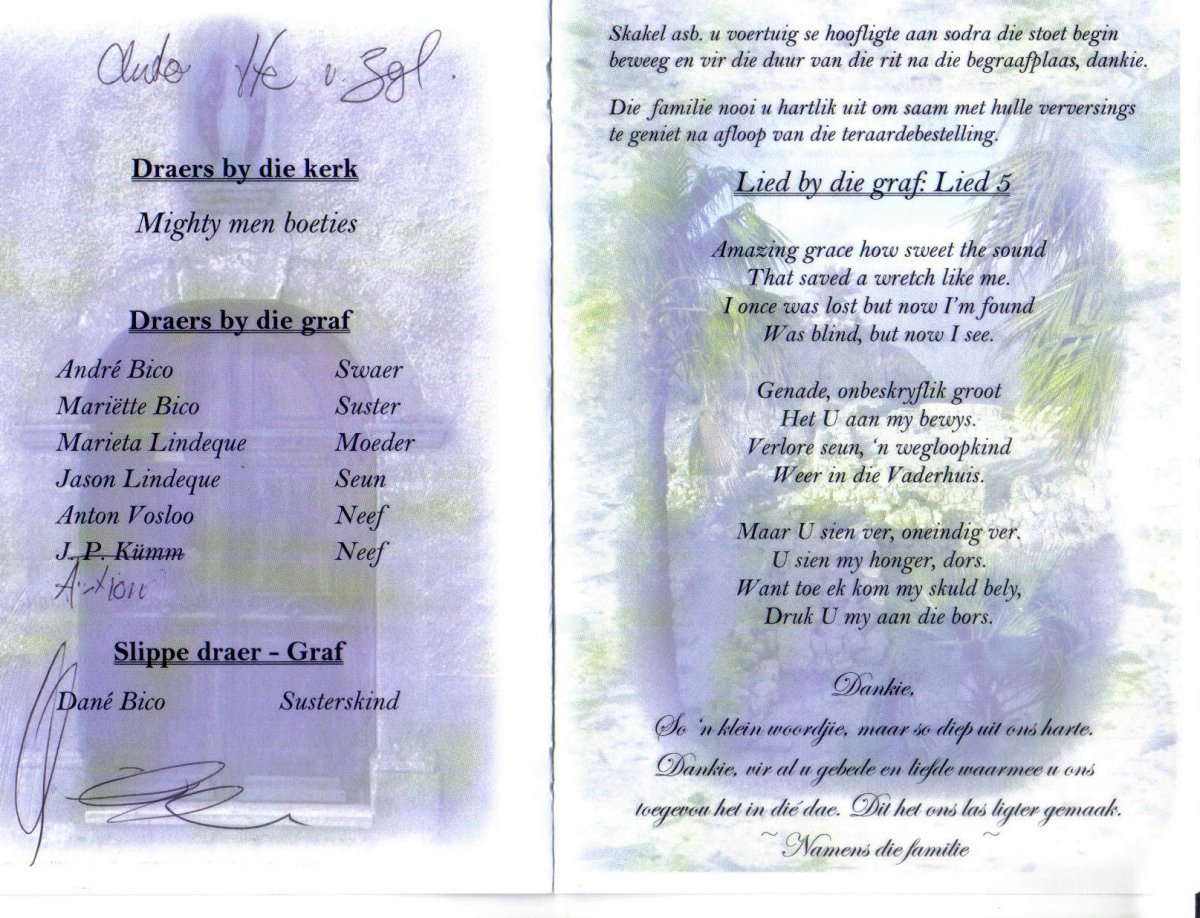 Draers by die kerk
Mighty men boeties
Draers by die graf
André Bico Swaer
Mariëtte Bico Suster
Marieta Lindeque Moeder
Jason Lindeque Seun
Anton Vosloo Neef
J. P. Kümm Neef
Slippe draer - Graf
Dané Bico Susterskind
Skakel asb. u voertuig se hoofligte aan sodra die stoet begin
beweeg en vir die duur van die rit na die begraafplaas, dankie.
Die familie nooi u hartlik uit om saam met hulle verversings
te geniet na afloop van die teraardebestelling.
Lied by die graf: Lied 5
Amazing grace how sweet the sound
That saved a wretch like me.
I once was lost but now I'm found
Was blind, but now I see.
Genade, onbeskryflik groot
Het U aan my bewys.
Verlore seun, 'n wegloopkind
Weer in die Vaderhuis.
Maar U sien ver, oneindig ver.
U sien my honger, dors.
Want toe ek kom my skuld bely,
Druk U my aan die bors.
Dankie,
So 'n klein woordjie, maar so diep uit ons harte.
Dankie, vir al u gebede en liefde waarmee u ons
toegevou het in dié dae. Dit het ons las ligter gemaak.
~ Namens die familie ~